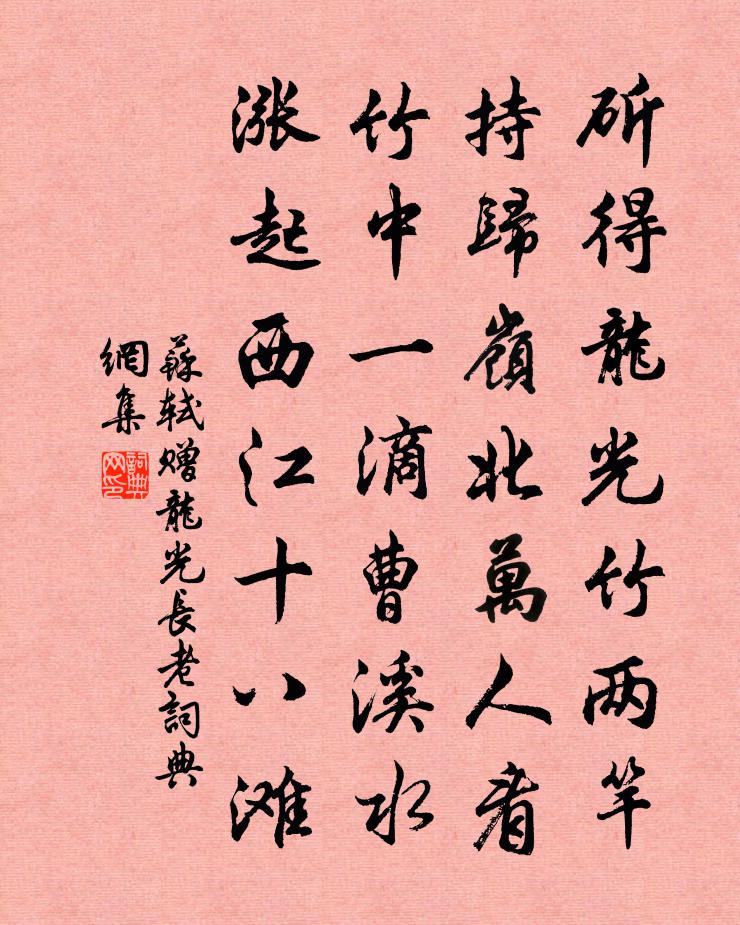 斫得龍光竹两竿
持歸嶺北萬人看
竹中一滴曹溪水
漲起西江十八滩
蘇軾赠龍光長老詞典
網集
詞典
网印